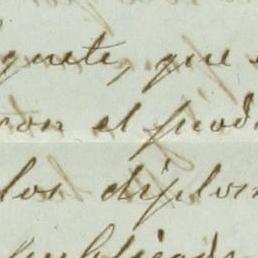 quete, que
ron el pod
los diplom
publicado